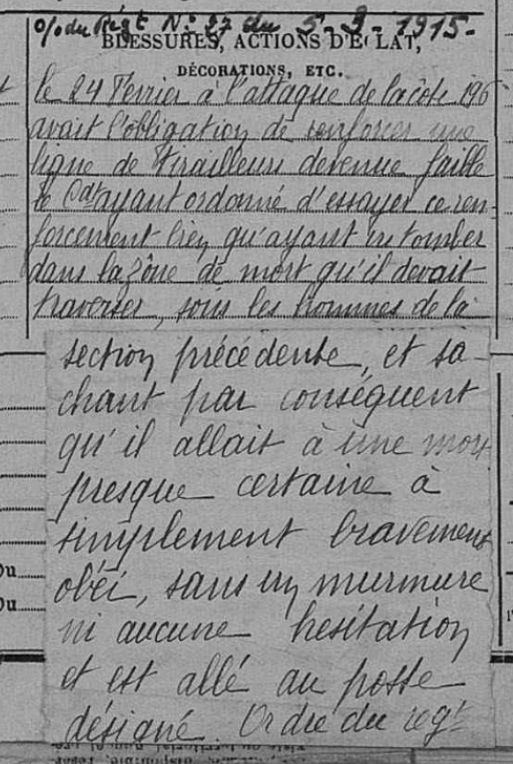 o/o du Régt No 37 du 5-3-1915-
BLESSURES, ACTIONS D'ÉCLAT,
DÉCORATIONS, ETC.
le 24 Février à l'attaque de la cote 196
avait l'obligation de renforcer une
ligne de Tirailleurs devenue faible
le Cdt ayant ordonné d'essayer ce ren-
forcement bien qu'ayant vu tomber
dans la zône de mort qu'il devait
traverser, tous les hommes de la
section précédente, et sa-
chant par conséquent
qu'il allait à une mort
presque certaine à
simplement bravement
obéi, sans un murmure
ni aucune hesitation
et est allé au poste
désigné. Ordre du regt